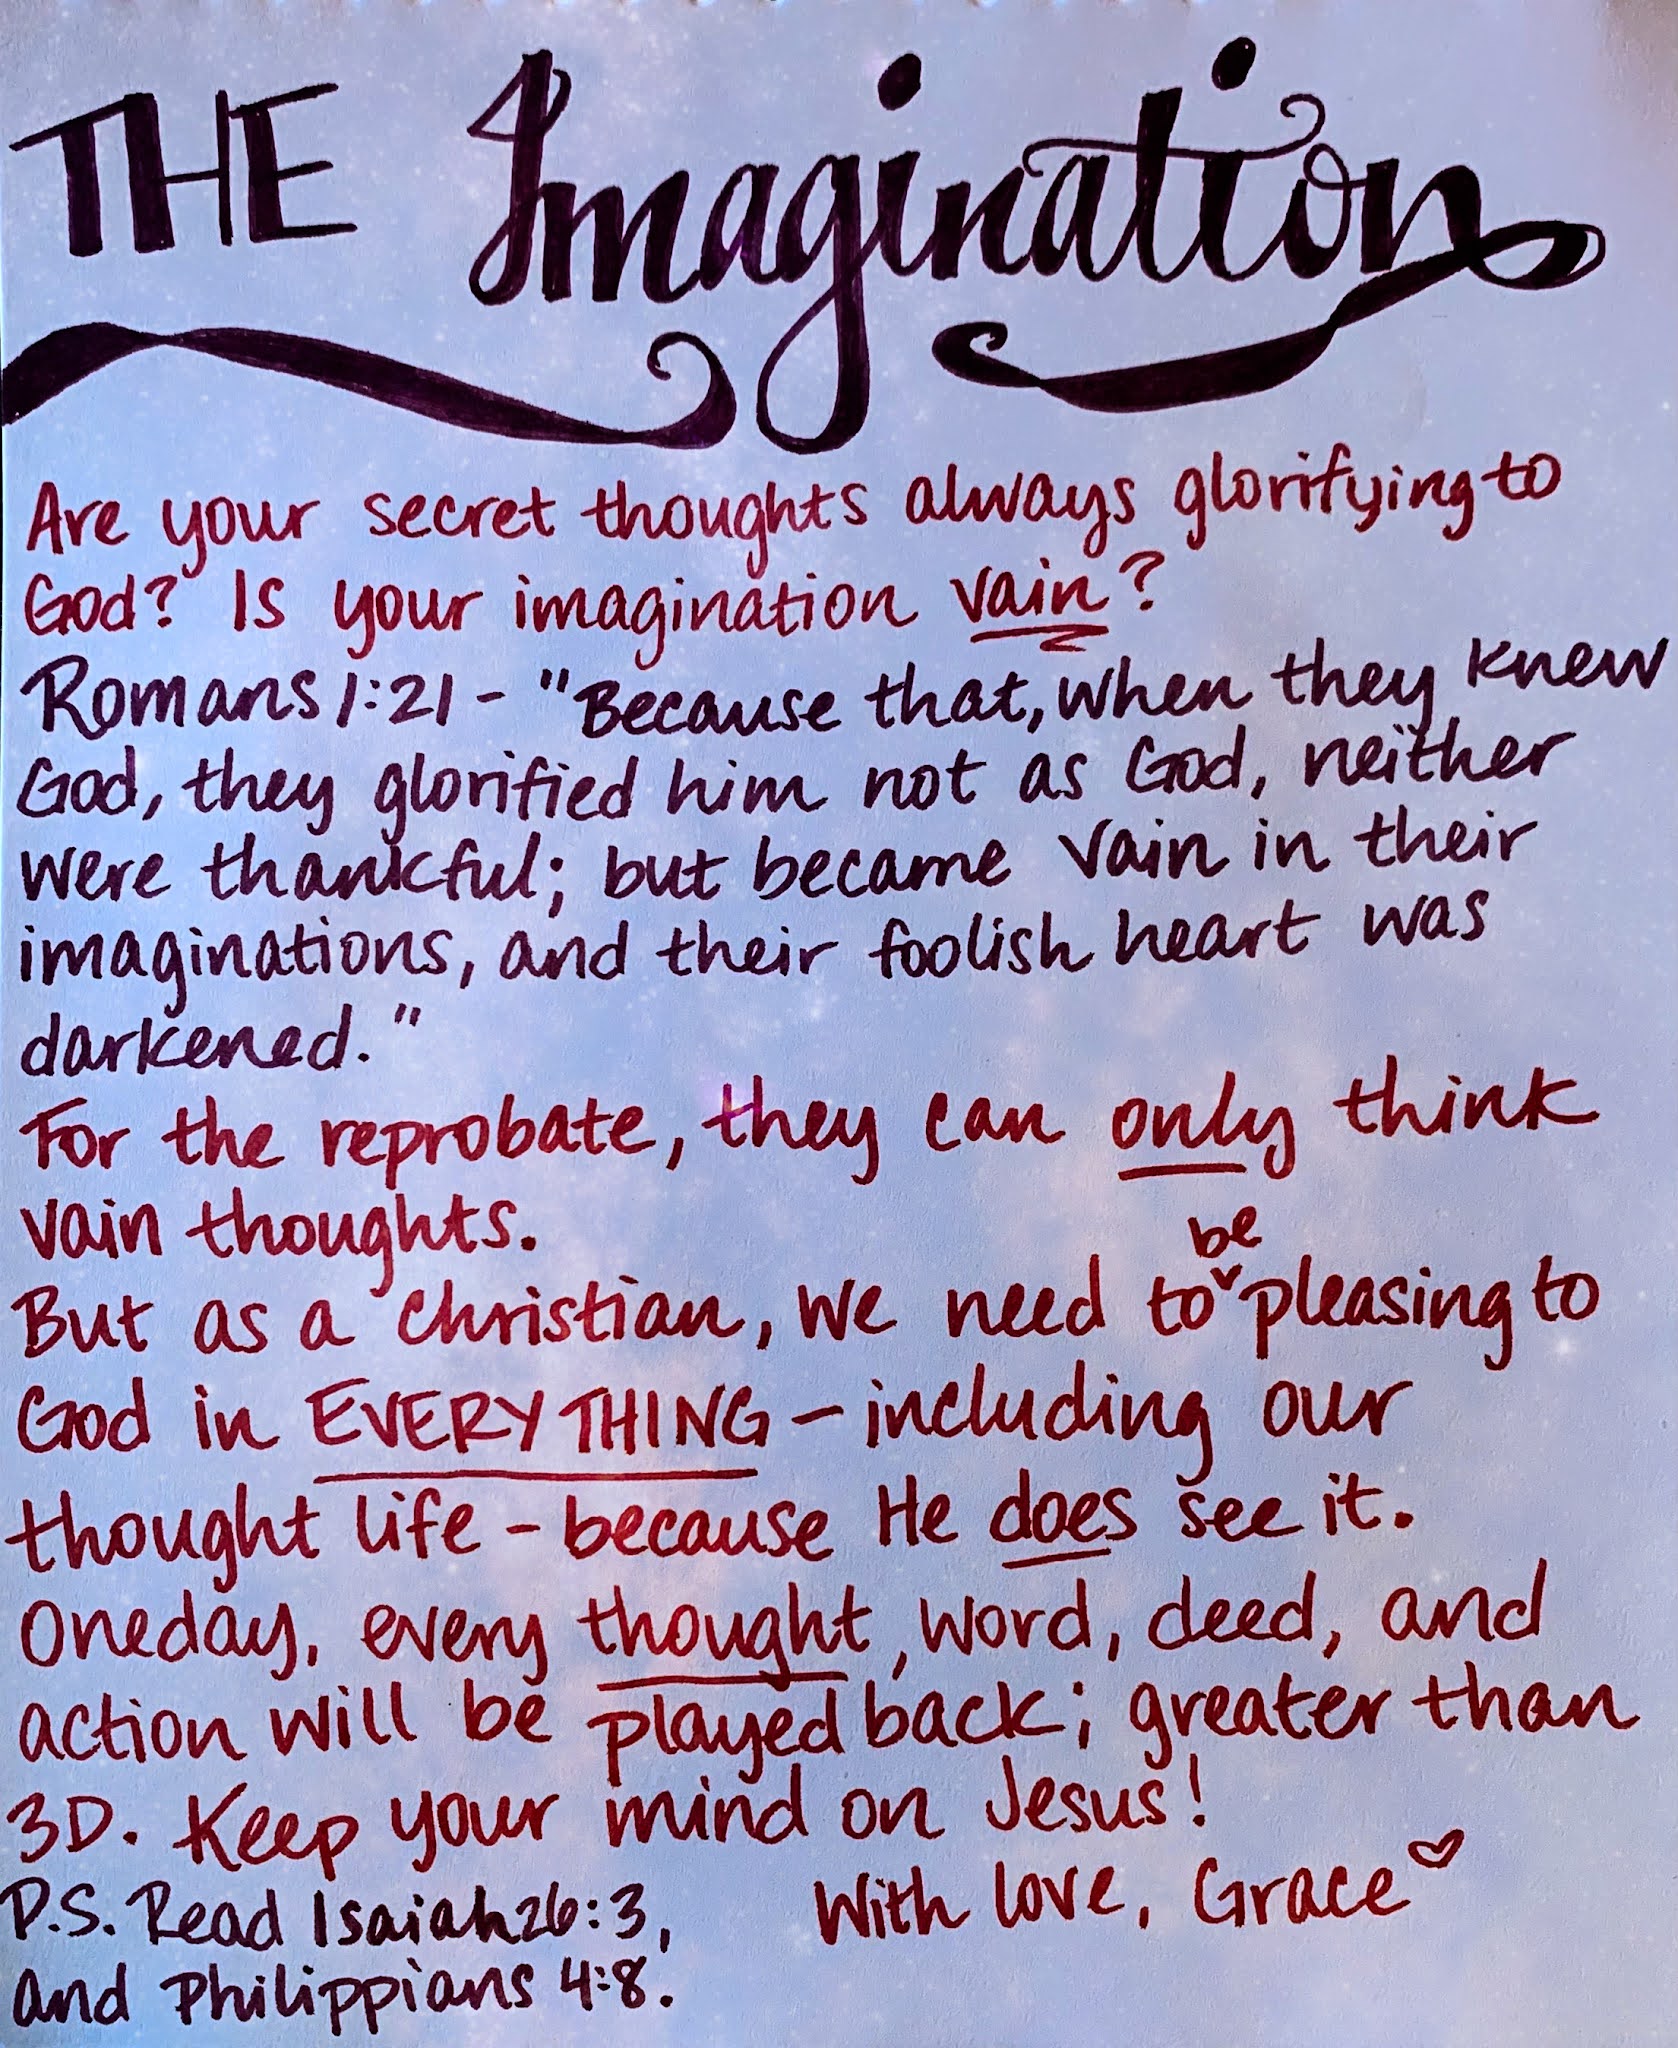 THE Imagination
Are your secret thoughts always glorifying to
God? Is your imagination vain?
Romans 1:21 - "Because that, when they knew
God, they glorified him not as God, neither
were thankful; but became vain in their
imaginations, and their foolish heart was
darkened."
For the reprobate, they can only think
vain thoughts.
But as a Christian, we need to be pleasing to
God in EVERYTHING - including our
thought life - because He does see it.
Oneday, every thought, word, deed, and
action will be played back; greater than
3D. Keep your mind on Jesus!
With love, Grace
P.S. Read Isaiah 26:3,
and Philippians 4:8.